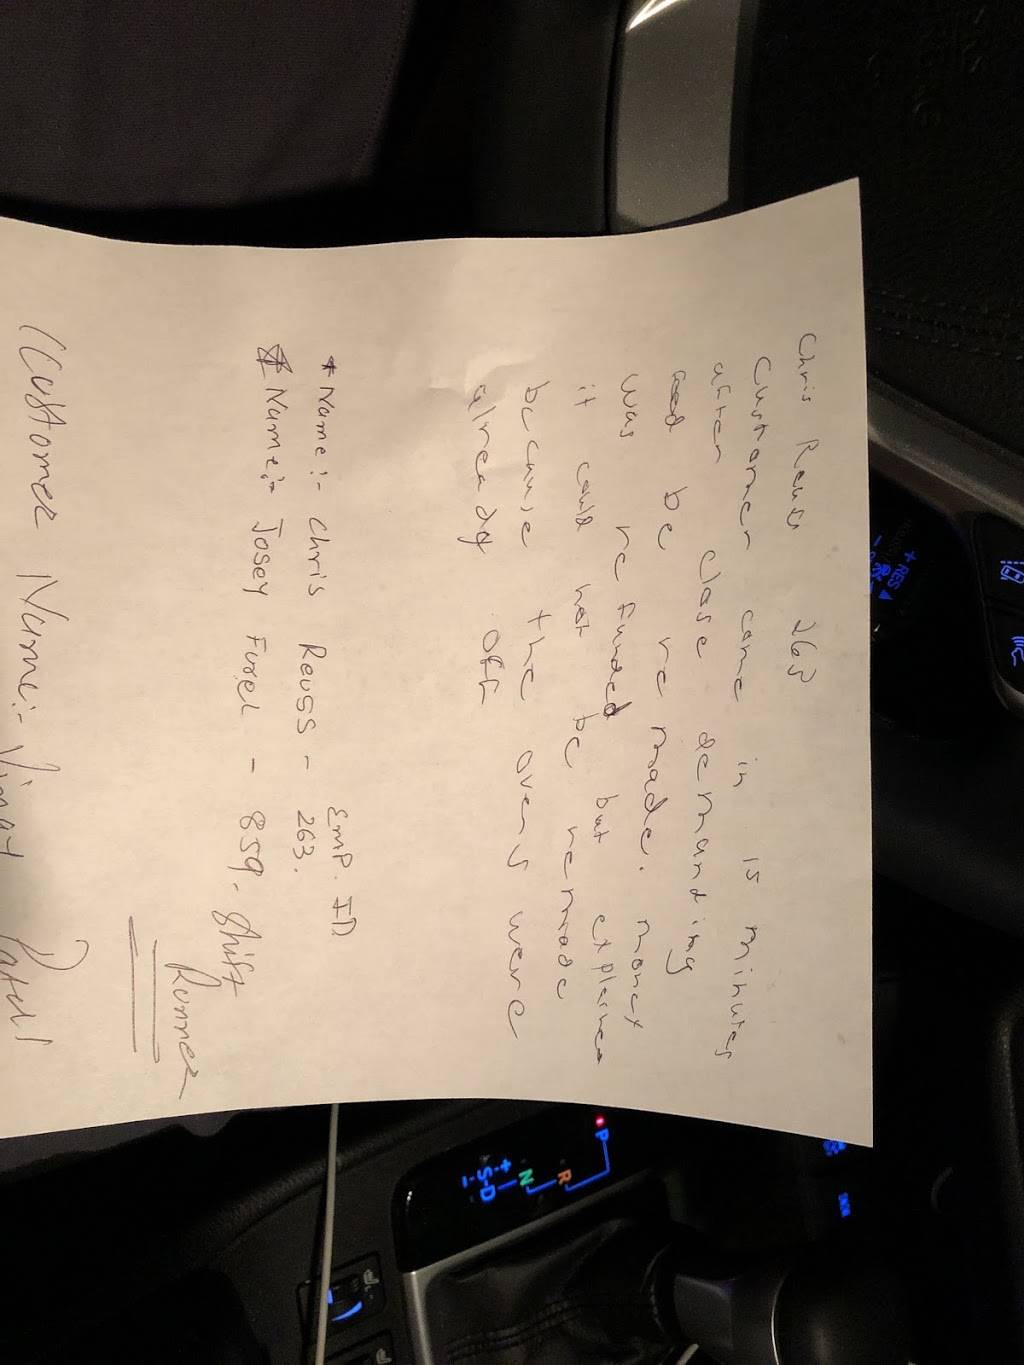 Chris Reuss 263
Customer came in 15 minutes
after close demanding
food be remade. money
was refunded but explained
it could not be remade
because the ovens were
already off
EMP. ID
* Name:- Chris Reuss - 263.
* Name:- Josey Furel - 859. Shift
Runner
(Customer Name:- Patel
+ RES
P
R
N
S-D
+
-